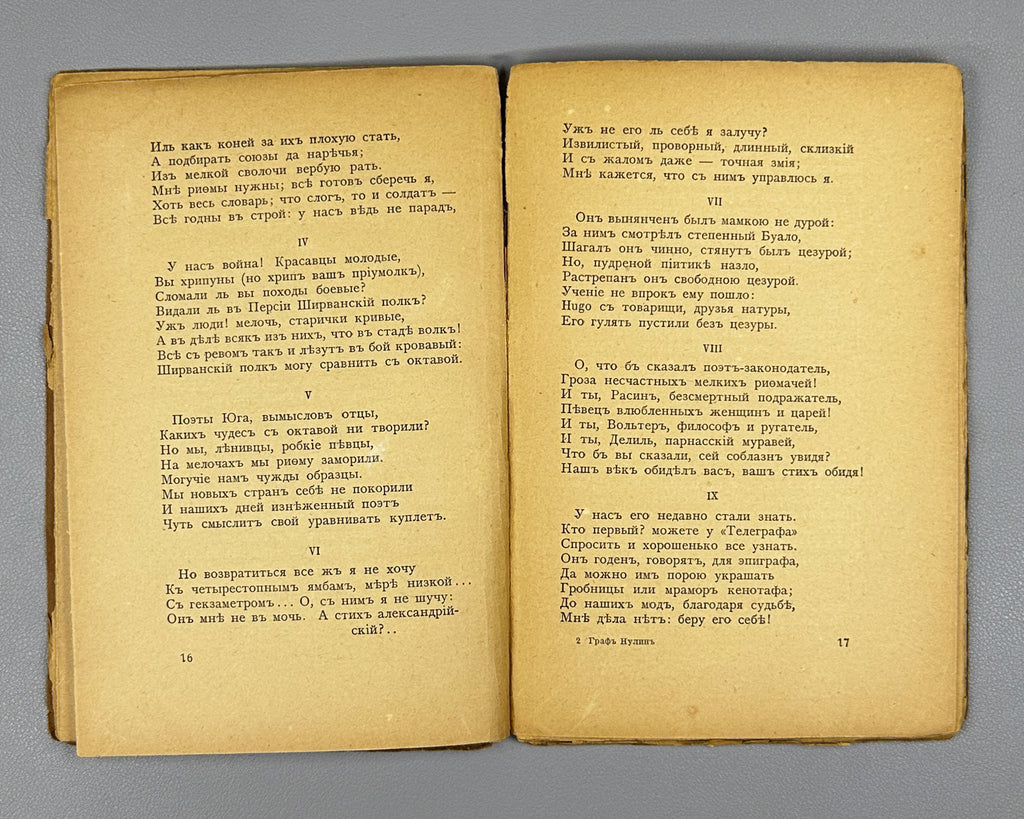 Иль какъ коней за ихъ плохую стать,
А подбирать союзы да нарѣчья;
Изъ мелкой сволочи вербую рать.
Мнѣ риѳмы нужны; всѣ готовъ сберечь я,
Хоть весь словарь; что слогъ, то и солдатъ —
Всѣ годны въ строй: у насъ вѣдь не парадъ,
IV
У насъ война! Красавцы молодые,
Вы хрипуны (но хрипъ вашъ пріумолкъ),
Сломали ль вы походы боевые?
Видали ль въ Персіи Ширванскій полкъ?
Ужъ люди! мелочь, старички кривые,
А въ дѣлѣ всякъ изъ нихъ, что въ стадѣ волкъ!
Всѣ съ ревомъ такъ и лѣзутъ въ бой кровавый:
Ширванскій полкъ могу сравнить съ октавой.
V
Поэты Юга, вымысловъ отцы,
Какихъ чудесъ съ октавой ни творили?
Но мы, лѣнивцы, робкіе пѣвцы,
На мелочахъ мы риѳму заморили.
Могучіе намъ чужды образцы.
Мы новыхъ странъ себѣ не покорили
И нашихъ дней изнѣженный поэтъ
Чуть смыслитъ свой уравнивать куплетъ.
VI
Но возвратиться все жъ я не хочу
Къ четырестопнымъ ямбамъ, мѣрѣ низкой...
Съ гекзаметромъ... О, съ нимъ я не шучу:
Онъ мнѣ не въ мочь. А стихъ александрій-
скій?..
16
Ужъ не его ль себѣ я залучу?
Извилистый, проворный, длинный, склизкій
И съ жаломъ даже — точная змія;
Мнѣ кажется, что съ нимъ управлюсь я.
VII
Онъ вынянченъ былъ мамкою не дурой:
За нимъ смотрѣлъ степенный Буало,
Шагалъ онъ чинно, стянутъ былъ цезурой;
Но, пудреной піитикѣ назло,
Растрепанъ онъ свободною цезурой.
Ученіе не впрокъ ему пошло:
Hugo съ товарищи, друзья натуры,
Его гулять пустили безъ цезуры.
VIII
О, что бъ сказалъ поэтъ-законодатель,
Гроза несчастныхъ мелкихъ риѳмачей!
И ты, Расинъ, безсмертный подражатель,
Пѣвецъ влюбленныхъ женщинъ и царей!
И ты, Вольтеръ, философъ и ругатель,
И ты, Делиль, парнасскій муравей,
Что бъ вы сказали, сей соблазнъ увидя?
Нашъ вѣкъ обидѣлъ васъ, вашъ стихъ обидя!
IX
У насъ его недавно стали знать.
Кто первый? можете у «Телеграфа»
Спросить и хорошенько все узнать.
Онъ годенъ, говорятъ, для эпиграфа,
Да можно имъ порою украшать
Гробницы или мраморъ кенотафа;
До нашихъ модъ, благодаря судьбѣ,
Мнѣ дѣла нѣтъ: беру его себѣ!
2 Графъ Нулинъ
17